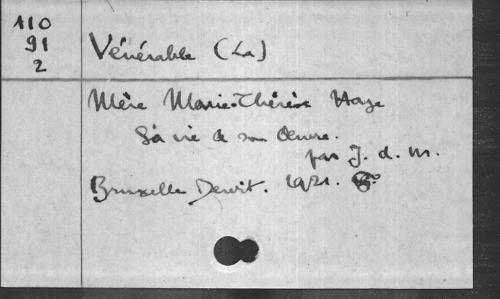 110
91
2
Vénérable (La)
Mère Marie-Thérèse Haze
Sa vie & son Oeuvre.
par J. d. M.
Bruxelle Dewit. 1921. 8°